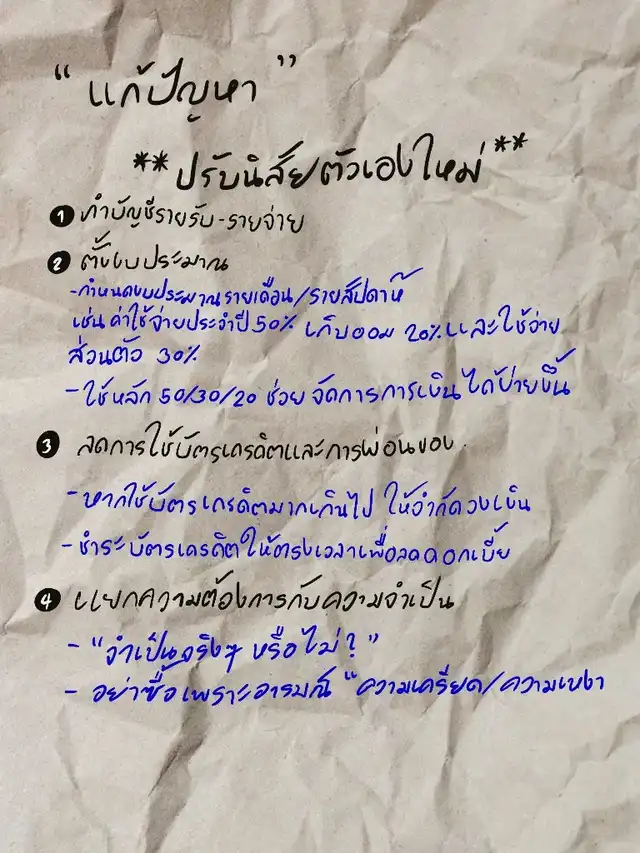 "แก้ปัญหา"
**ปรับนิสัยตัวเองใหม่**
1 ทำบัญชีรายรับ-รายจ่าย
2 ตั้งงบประมาณ
-กำหนดงบประมาณรายเดือน/รายสัปดาห์
เช่น ค่าใช้จ่ายประจำปี 50% เก็บออม 20% และใช้จ่าย
ส่วนตัว 30%
- ใช้หลัก 50/30/20 ช่วยจัดการการเงินได้ง่ายขึ้น
3 ลดการใช้บัตรเครดิตและการผ่อนของ.
- หากใช้บัตรเครดิตมากเกินไป ให้จำกัดวงเงิน
- ชำระบัตรเครดิตให้ตรงเวลาเพื่อลดดอกเบี้ย
4 แยกความต้องการกับความจำเป็น
- "จำเป็นจริงๆ หรือไม่?"
- อย่าซื้อเพราะอารมณ์ "ความเครียด/ความเหงา